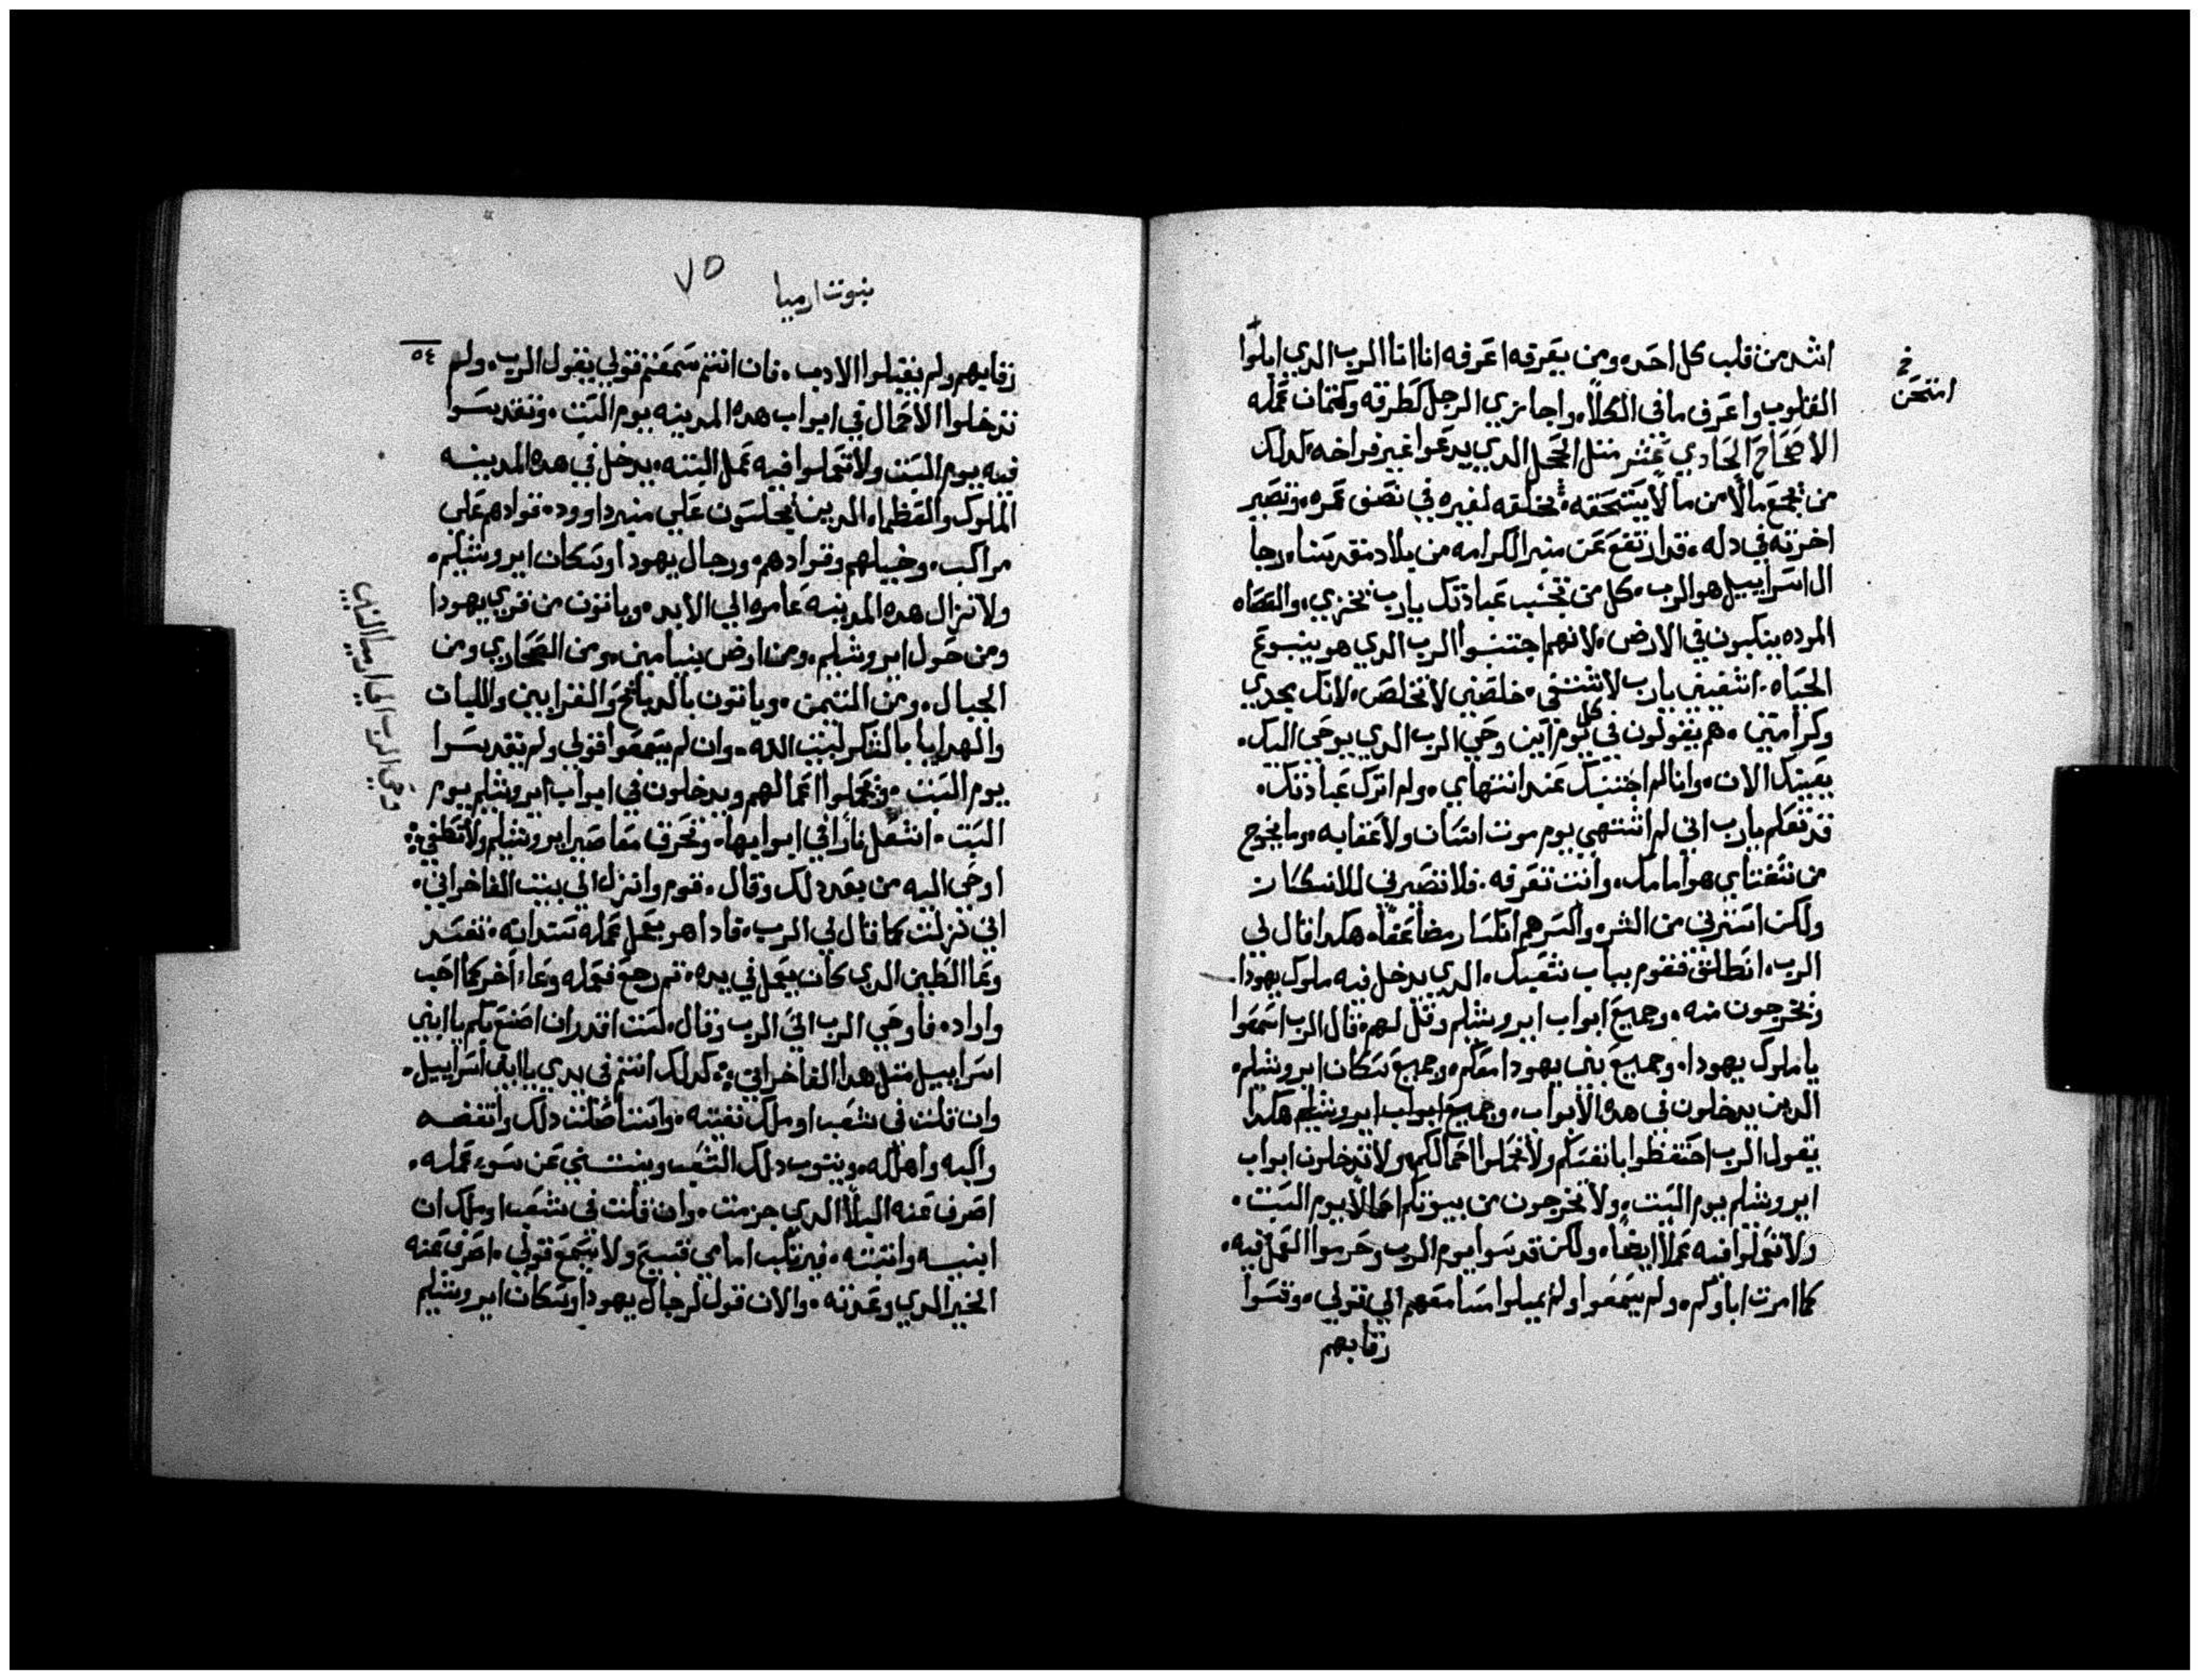 اشد من قلب كل احد، ومن يعرفه اعرفه انا انا الرب الدي ابلوا
القلوب واعرف ما فى الكلا، واجازي الرجل كطرقه وكتمان عمله
الاصحاح الحادي عشر متل الحجل الدي يدعوا غير فراخه، كدلك
من يجمع مالا من ما لا يستحقه، يخلفه لغيره في نصف عمره، وتصير
اخرته في دله، قد ارتفع عن منبر الكرامه من بلاد مقدسنا، رجا
ال اسراييل هو الرب، كل من تجنب عبادتك يا رب يخزي، والعصاه
المرده ينكبون في الارض، لانهم اجتنبوا الرب الدي هو ينبوع
الحياه، اشفيني يا رب لاشتفى، خلصني لاتخلص، لانك مجدي
وكرامتي، هم يقولون في كل يوم اين وحي الرب الدي يوحي اليك،
يقينك الان، وانا لم اجتنبك عند انتهاي، ولم اترك عبادتك،
قد تعلم يا رب اني لم اشتهي يوم موت انسان ولا عقابه، وما يخرج
من شفتاي هو امامك، وانت تعرفه، فلا تصيرني للانكسار
ولكن استرني من الشر، واكسرهم انكسار مضاعفا، هكدا قال لي
الرب، انطلق فقوم بباب شعبك، الدي يدخل فيه ملوك يهودا،
وتخرجون منه، وجميع ابواب ايروشلم وقل لهم، قال الرب اسمعوا
يا ملوك يهودا، وجميع بني يهودا معكم، وجميع سكان ايروشلم،
الدين يدخلون في هده الابواب، وجميع ابواب ايروشلم هكدا
يقول الرب احتفظوا بانفسكم ولا تحملوا احمالكم، ولا تدخلون ابواب
ايروشلم يوم السبت، ولا تخرجون من بيوتكم احمالا يوم السبت،
ولا تعملوا فيه عملا ايضا، ولكن قدسوا يوم الرب وحرموا العمل فيه،
كما امرت اباوكم، ولم يسمعوا ولم يميلوا مسامعهم الي قولي، وقسوا
رقابهم
امتحن
نبوت ارميا
٧٥
٥٤
رقابهم ولم يقبلوا الادب، فان انتم سمعتم قولي يقول الرب، ولم
تدخلوا الاحمال في ابواب هده المدينه يوم السبت، وتقدسوا
فيه يوم السبت ولا تعملوا فيه عمل البته، يدخل في هده المدينه
الملوك والعظماء الدين يجلسون علي منبر داوود، قوادهم علي
مراكب، وخيلهم وقوادهم، ورجال يهودا وسكان ايروشليم،
ولا تزال هده المدينه عامره الي الابد، وياتون من قري يهودا
ومن حول ايروشلم، ومن ارض بنيامين، ومن الصحاري ومن
الجبال، ومن التيمن، وياتون بالدبايح والقرابين واللبان
والهدايا بالشكر لبيت الله، وان لم يسمعوا قولي ولم يقدسوا
يوم السبت، وتحملوا اعمالهم ويدخلون في ابواب ايروشلم يوم
السبت، اشعل نارا في ابوابها، وتحرق مقاصير ايروشليم ولا تطفي
اوحي اليه من بعد دلك وقال، قوم وانزل الي بيت الفاخراني،
اني نزلت كما قال لي الرب، فادا هو يعمل عمله بسندانه، تفسد
وعا الطين الدي كان يعمل في يده، تم رجع فعمله وعاء اخر كما احب
واراد، فاوحي الرب الي الرب وقال، لست اقدر ان اصنع بكم يا ابني
اسراييل متل هدا الفاخراني، كدلك انتم في يدي يا ابني اسراييل،
وان قلت في شعب او ملك نفيته، واستاصلت دلك وانفضه
واكبه واهلكه، ويتوب دلك الشعب وينتني عن سوء عمله،
اصرف عنه البلا الدي جزمت، وان قلت في شعب او ملك ان
ابنيه واتبته، فيرتكب امامي قبيح ولا يسمع قولي، اصرف عنه
الخير الدي وعدته، والان قول لرجال يهودا وسكان ايروشليم
وحي الرب الي ارميا النبي